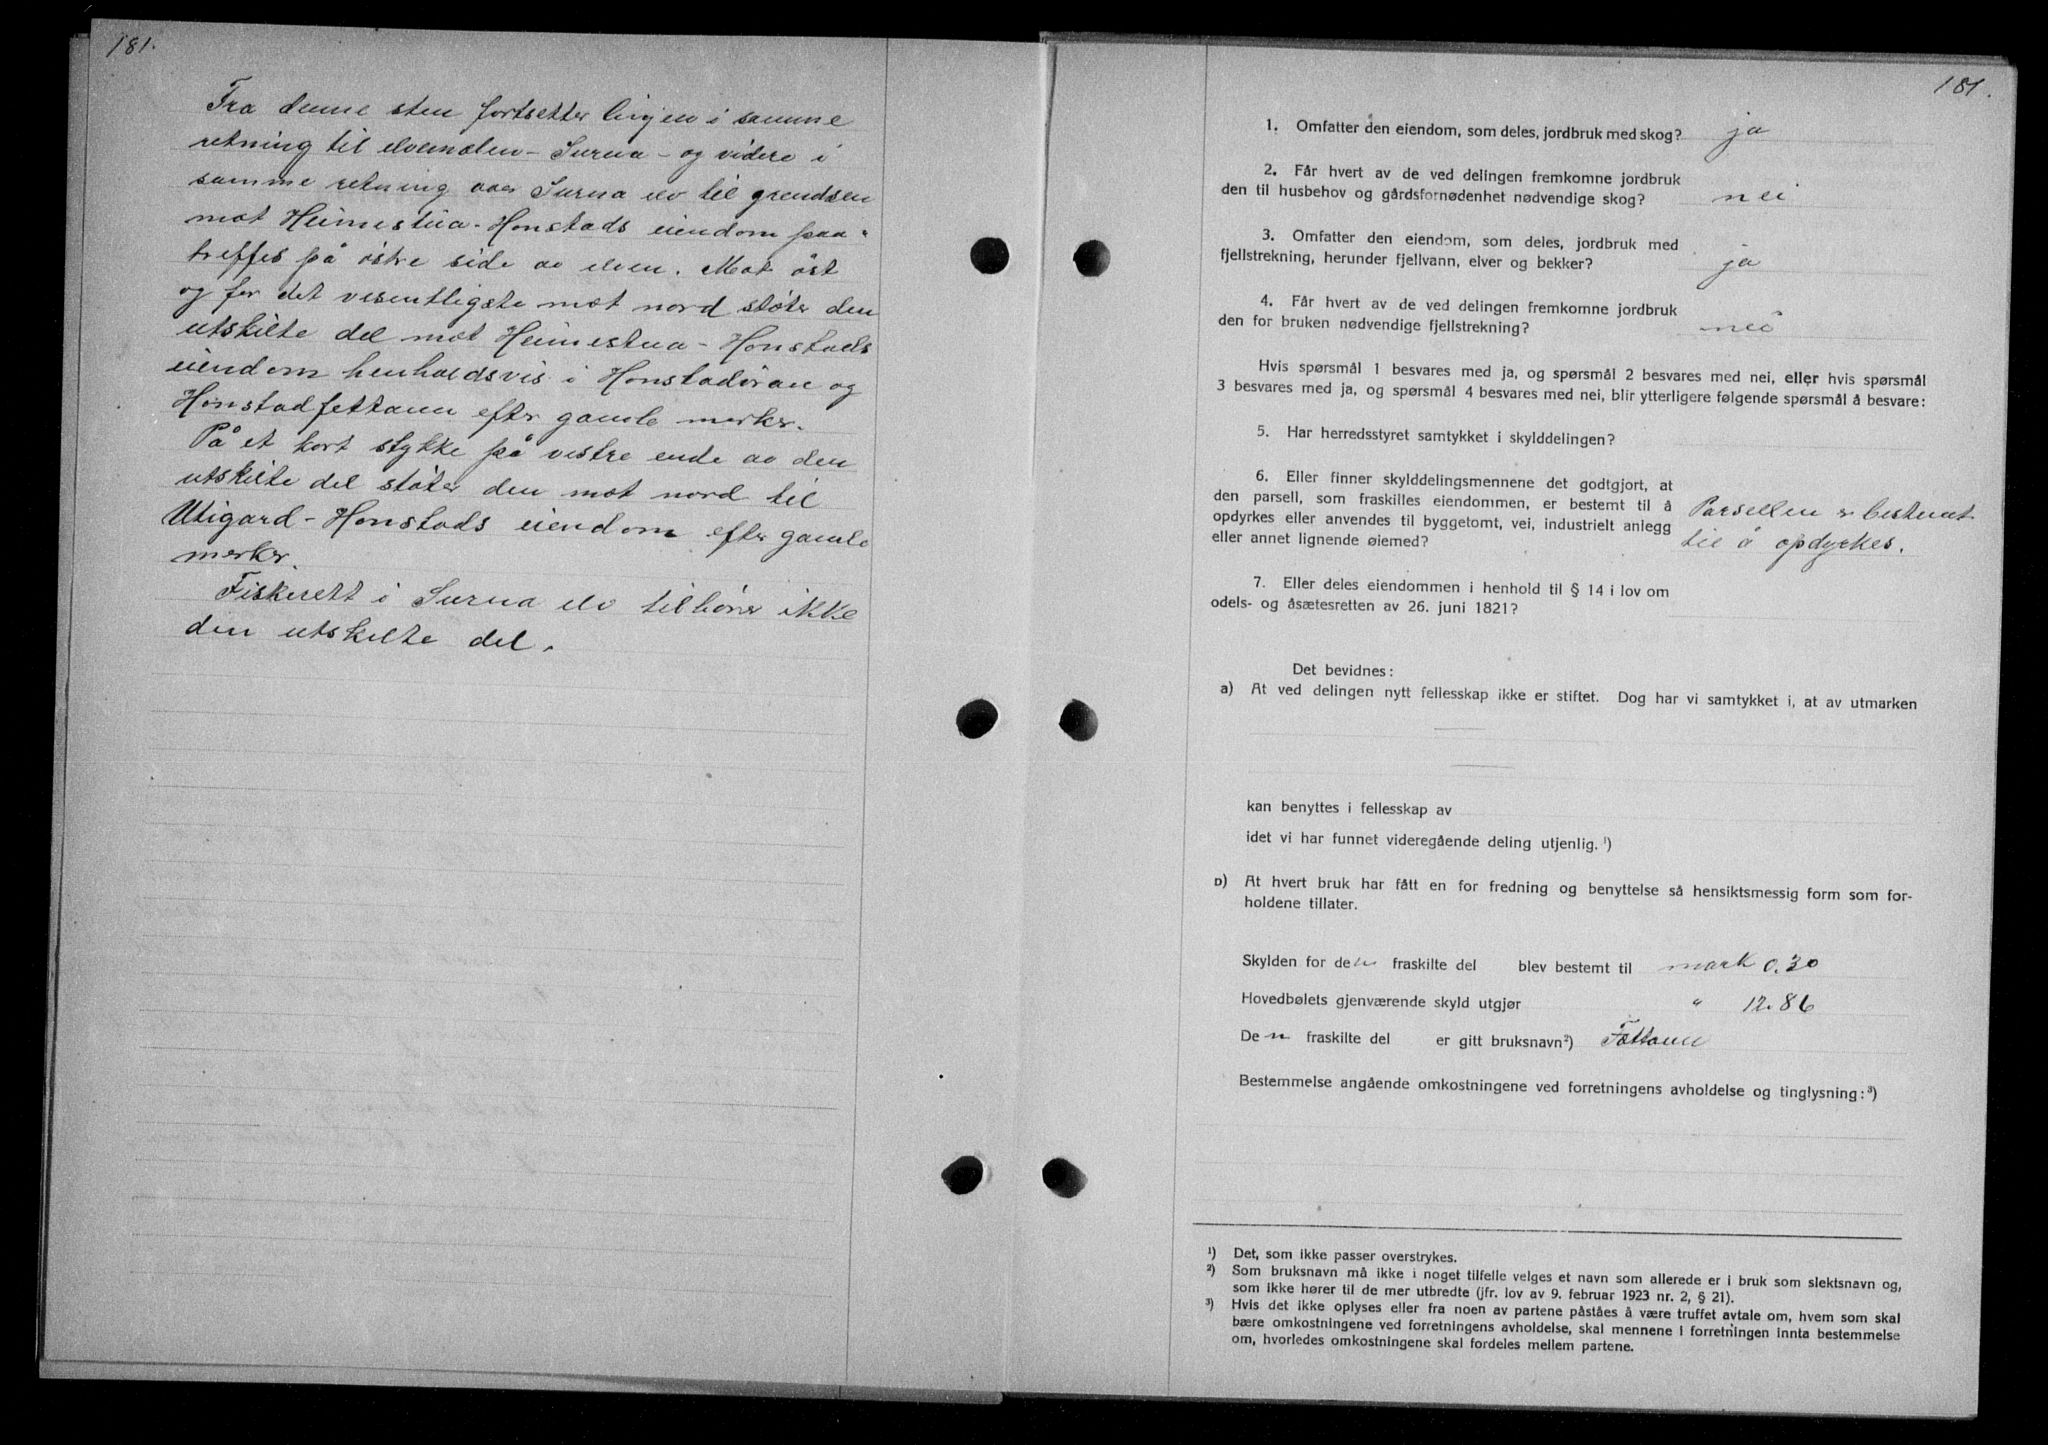 181.
Fra denne sten fortsetter linjen i samme
retning til elvemælen - Surna - og videre i
samme retning over Surna elv til grendsen
mot Heimestua - Honstads eiendom paa-
treffes på østre side av elven. Mot øst
og for det vesentligste mot nord støter den
utskilte del mot Heimestua - Honstads
eiendom henholdsvis i Honstadøran og
Honstadfettann efter gamle merker.
På et kort stykke på vestre ende av den
utskilte del støter den mot nord til
Utigard - Honstads eiendom efter gamle
merker.
Fiskerett i Surna elv tilhører ikke
den utskilte del.
181.
1. Omfatter den eiendom, som deles, jordbruk med skog? ja
2. Får hvert av de ved delingen fremkomne jordbruk
den til husbehov og gårdsfornødenhet nødvendige skog? nei
3. Omfatter den eiendom, som deles, jordbruk med
fjellstrekning, herunder fjellvann, elver og bekker? ja
4. Får hvert av de ved delingen fremkomne jordbruk
den for bruken nødvendige fjellstrekning? nei
Hvis spørsmål 1 besvares med ja, og spørsmål 2 besvares med nei, eller hvis spørsmål
3 besvares med ja, og spørsmål 4 besvares med nei, blir ytterligere følgende spørsmål å besvare:
5. Har herredsstyret samtykket i skylddelingen?
6. Eller finner skylddelingsmennene det godtgjort, at
den parsell, som fraskilles eiendommen, er bestemt til å
opdyrkes eller anvendes til byggetomt, vei, industrielt anlegg
eller annet lignende øiemed?
Parsellen er bestemt
til å opdyrkes.
7. Eller deles eiendommen i henhold til § 14 i lov om
odels- og åsætesretten av 26. juni 1821?
Det bevidnes:
a) At ved delingen nytt fellesskap ikke er stiftet. Dog har vi samtykket i, at av utmarken
kan benyttes i fellesskap av
idet vi har funnet videregående deling utjenlig. ¹)
b) At hvert bruk har fått en for fredning og benyttelse så hensiktsmessig form som for-
holdene tillater.
Skylden for den fraskilte del blev bestemt til mark 0.30
Hovedbølets gjenværende skyld utgjør " 12.86
Den fraskilte del er gitt bruksnavn²) Fettann
Bestemmelse angående omkostningene ved forretningens avholdelse og tinglysning: ³)
¹) Det, som ikke passer overstrykes.
²) Som bruksnavn må ikke i noget tilfelle velges et navn som allerede er i bruk som slektsnavn og,
som ikke hører til de mer utbredte (jfr. lov av 9. februar 1923 nr. 2, § 21).
³) Hvis det ikke oplyses eller fra noen av partene påståes å være truffet avtale om, hvem som skal
bære omkostningene ved forretningens avholdelse, skal mennene i forretningen innta bestemmelse
om, hvorledes omkostningene skal fordeles mellem partene.